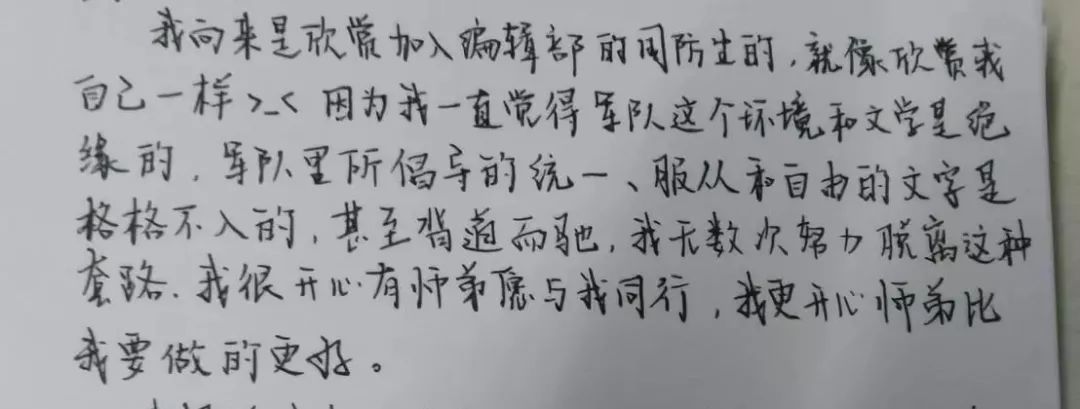 我向来是欣赏加入编辑部的国防生的，就像欣赏我
自己一样>_< 因为我一直觉得军队这个环境和文学是绝
缘的，军队里所倡导的统一、服从和自由的文字是
格格不入的，甚至背道而驰，我无数次努力脱离这种
套路、我很开心有师弟愿与我同行，我更开心师弟比
我要做的更好。